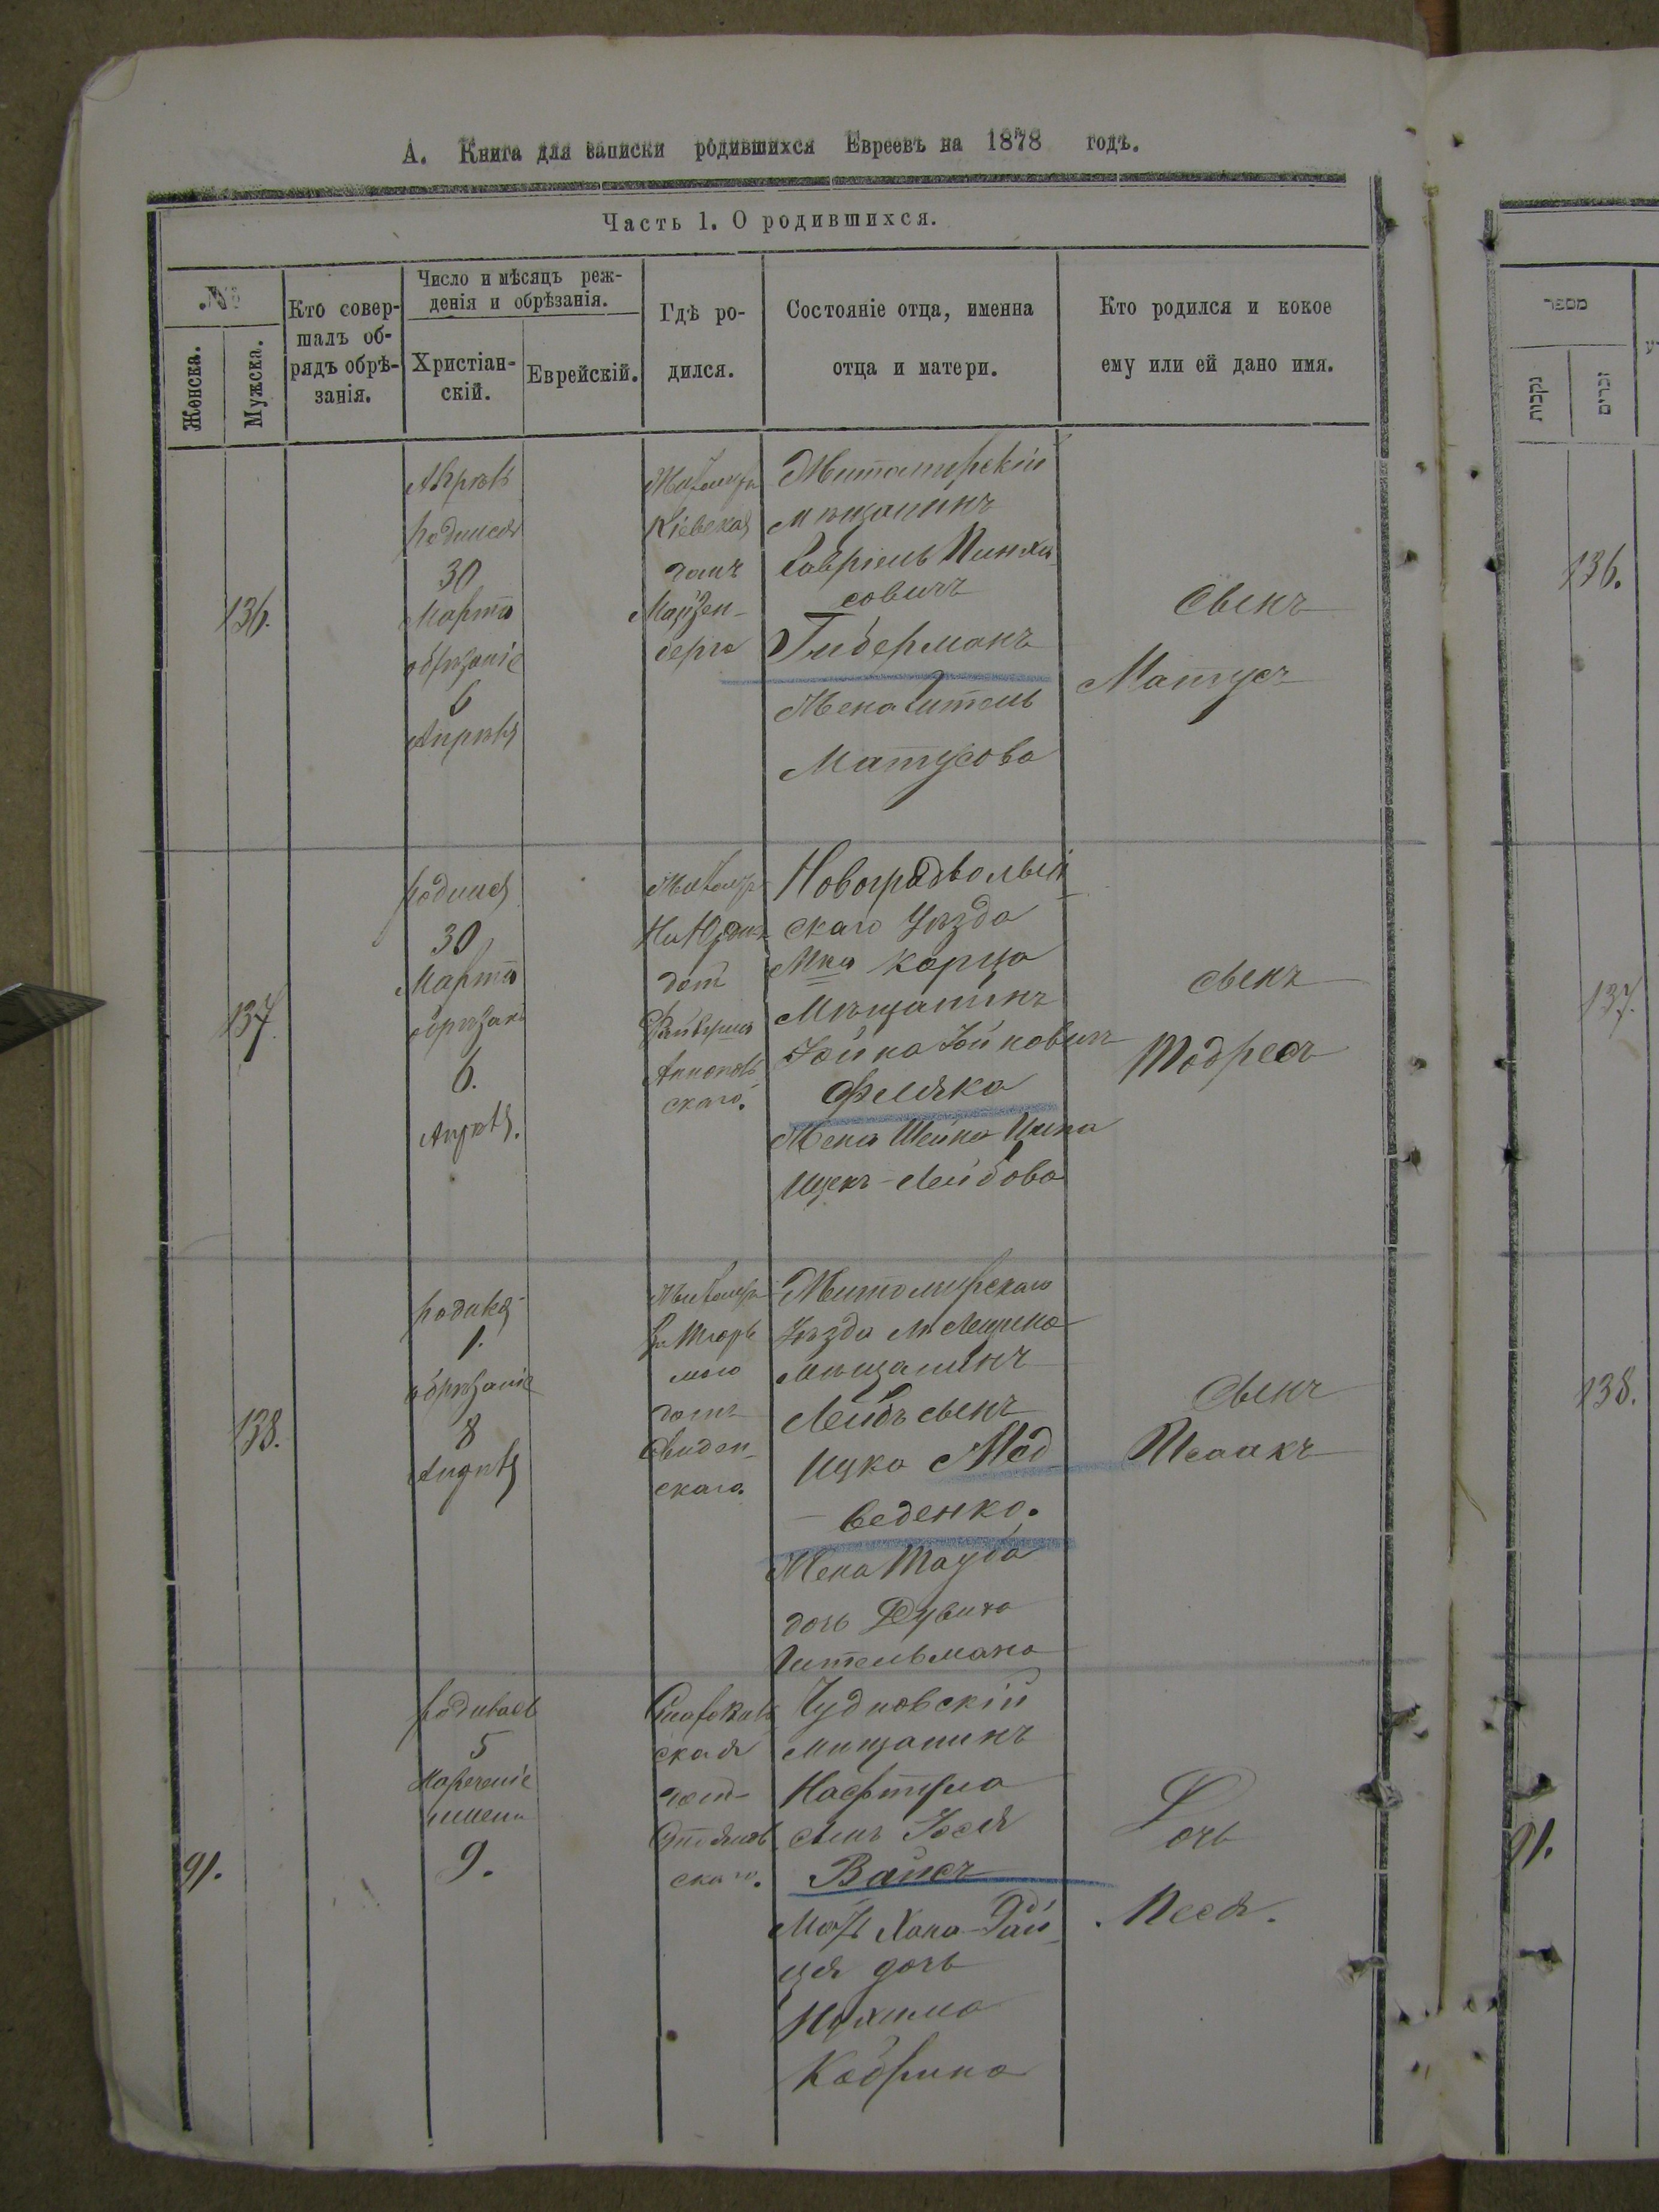 А. Книга для записки родившихся Евреевъ на 1878 годъ.
Часть 1. О родившихся.
№
Женска.
Мужска.
Кто совер-
шалъ об-
рядъ обрѣ-
занія.
Число и мѣсяцъ рож-
денія и обрѣзанія.
Христіан-
скій.
Еврейскій.
Гдѣ ро-
дился.
Состояніе отца, именна
отца и матери.
Кто родился и кокое
ему или ей дано имя.
136.
Апрѣль
родился
30
Марта
обрѣзаніе
6
Апрѣля
Житомиръ
Кіевская
домъ
Майзен-
берга
Житомирскій
мѣщанинъ
Гавріель Пинха-
совичъ
Гиберманъ
Жена Гитель
Матусова
Сынъ
Матусъ
137.
родился
30
Марта
обрѣзаніе
6.
Апрѣля.
Житомиръ
домъ
скаго.
Новоградволын-
скаго Уѣзда
Мка Корца
Мѣщанинъ
Хойновичъ
Фляка
Жена Шейна
Ицекъ-Лейбова
Сынъ
Тодресъ
138.
родился
1.
обрѣзаніе
8
Апрѣля
Житомиръ
домъ
скаго.
Житомирскаго
Уѣзда М. Лещина
мѣщанинъ
Лейбъ сынъ
Ицка Мед-
веденко.
Жена Тауба
дочь Рувина
Гительмана
Сынъ
Исаакъ
91.
родилась
5
Нареченіе
имени
9.
ская
домъ
скаго.
Чудновскій
мищанинъ
Нафтула
сынъ Іося
Вайсъ
Мать Хана-Рай-
ця дочь
Нухима
Кодрина
Дочь
Песя.
מספר
נקבות
זכרים
136.
137.
138.
91.